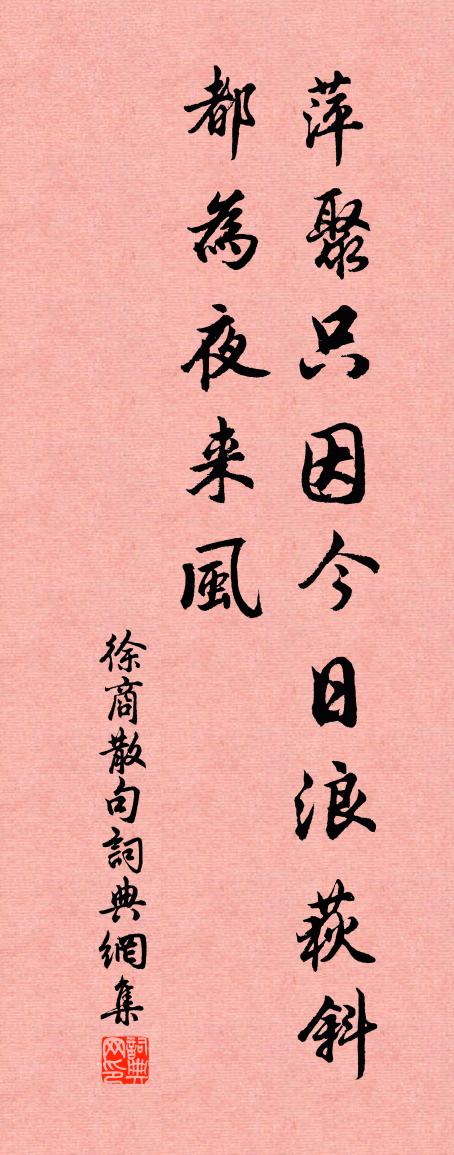 萍聚只因今日浪荻斜
都為夜来風
徐商散句詞典網集
詞典网印